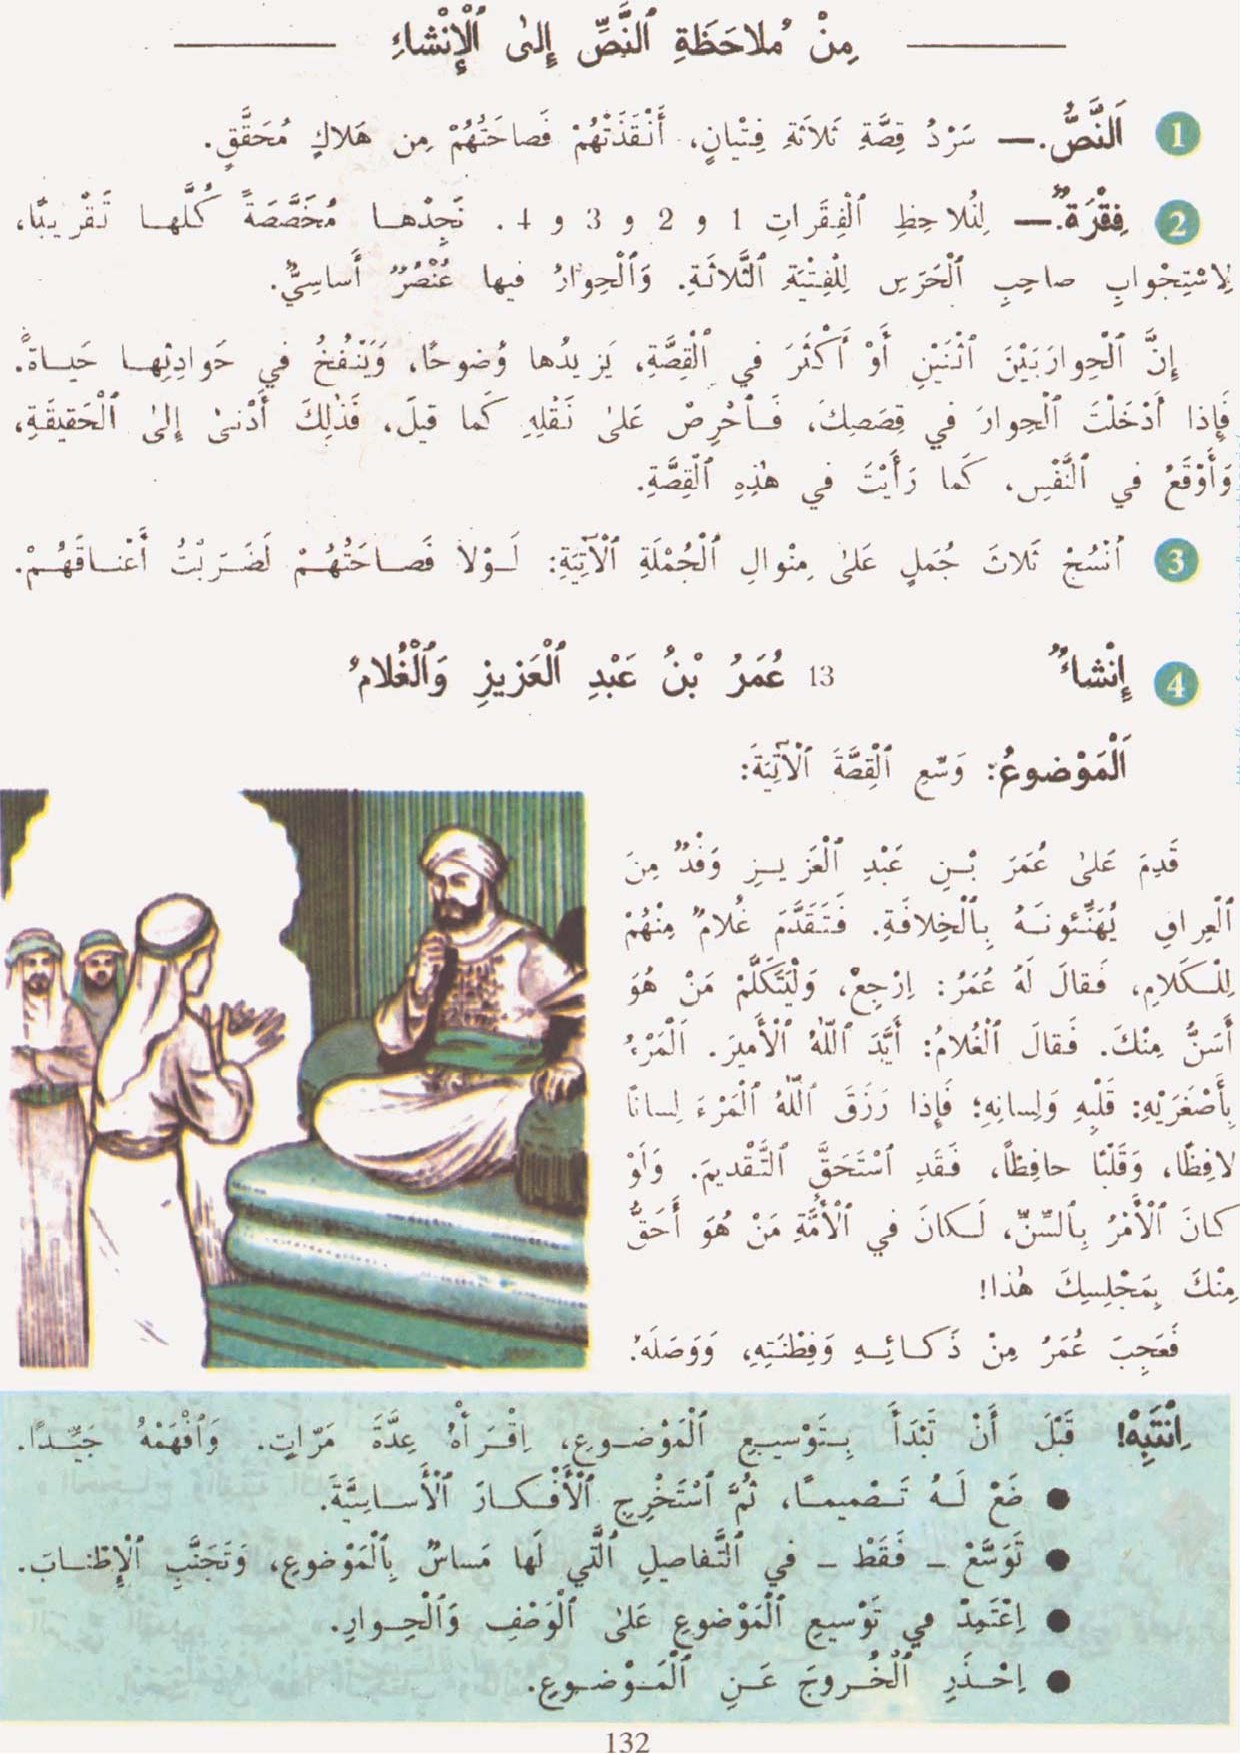 مِنْ مُلاحَظَةِ ٱلنَّصِّ إِلىٰ ٱلْإِنْشاءِ
1 اَلنَّصُّ. — سَرْدُ قِصَّةِ ثَلاثَةِ فِتْيانٍ، أَنْقَذَتْهُمْ فَصاحَتُهُمْ مِن هَلاكٍ مُحَقَّقٍ.
2 فِقْرَةٌ. — لِنُلاحِظِ ٱلْفِقَراتِ 1 و 2 و 3 و 4. نَجِدْهـا مُخَصَّصَةً كُلَّهـا تَقْريبًا،
لِاسْتِجْوابِ صاحِبِ ٱلْحَرَسِ لِلْفِتْيَةِ ٱلثَّلاثَةِ. وَٱلْحِوارُ فيها عُنْصُرٌ أَساسِيٌّ.
إِنَّ ٱلْحِوارَ بَيْنَ ٱثْنَيْنِ أَوْ أَكْثَرَ في ٱلْقِصَّةِ، يَزيدُها وُضوحًا، وَيَنْفُخُ في حَوادِثِهـا حَيـاةً.
فَإِذا أَدْخَلْتَ ٱلْحِوارَ في قِصَصِكَ، فَـٱحْرِصْ عَلىٰ نَقْلِهِ كَما قيلَ، فَذٰلِكَ أَدْنىٰ إِلىٰ ٱلْحَقيقَةِ،
وَأَوْقَعُ في ٱلنَّفْسِ، كَما رَأَيْتَ في هٰذِهِ ٱلْقِصَّةِ.
3 اُنْسُجْ ثَلاثَ جُمَلٍ عَلىٰ مِنْوالِ ٱلْجُمْلَةِ ٱلْآتِيَةِ: لَـوْلا فَصـاحَتُهُـمْ لَضَـرَبْتُ أَعْنـاقَهُـمْ.
4 إِنْشاءٌ 13 عُمَرُ بْنُ عَبْدِ ٱلْعَزيزِ وَٱلْغُلامُ
اَلْمَوْضوعُ: وَسِّعِ ٱلْقِصَّةَ ٱلْآتِيَةَ:
قَدِمَ عَلىٰ عُمَرَ بْـنِ عَبْدِ ٱلْعَزيـزِ وَفْدٌ مِنَ
ٱلْعِراقِ يُهَنِّئونَـهُ بِٱلْخِلافَةِ. فَتَقَدَّمَ غُلامٌ مِنْهُمْ
لِلْـكَلامِ، فَـقالَ لَهُ عُمَرُ: اِرْجِعْ، وَلْيَتَكَلَّمْ مَنْ هُوَ
أَسَنُّ مِنْكَ. فَـقالَ ٱلْغُلامُ: أَيَّدَ ٱللّٰهُ ٱلْأَميرَ. اَلْمَرْءُ
بِأَصْغَرَيْهِ: قَلْبِهِ وَلِسانِهِ؛ فَإِذا رَزَقَ ٱللّٰهُ ٱلْمَرْءَ لِسانًا
لافِظًا، وَقَلْبًا حافِظاً، فَـقَدِ ٱسْتَحَقَّ ٱلتَّقْديمَ. وَلَوْ
كـانَ ٱلْأَمْرُ بِٱلسِّنِّ، لَـكانَ في ٱلْأُمَّةِ مَنْ هُوَ أَحَقُّ
مِنْكَ بِمَجْلِسِكَ هٰذا!
فَعَجِبَ عُمَرُ مِنْ ذَكـائِـهِ وَفِطْنَتِهِ، وَوَصَلَهُ.
اِنْتَبِهْ! قَبْلَ أَنْ تَبْدَأَ بِـتَوْسيـعِ ٱلْمَوْضـوعِ، اِقْـرَأْهُ عِدَّةَ مَرّاتٍ. وَٱفْهَمْهُ جَيِّـدًا.
● ضَعْ لَـهُ تَـصْميمـًا، ثُمَّ ٱسْتَخْرِجِ ٱلْأَفْـكـارَ ٱلْأَسـاسِيَّةَ.
● تَوَسَّعْ – فَـقَطْ – في ٱلتَّفاصيلِ ٱلَّتي لَها مَساسٌ بِٱلْمَوْضوعِ، وَتَجَنَّبِ ٱلْإِطْنـابَ.
● اِعْتَمِدْ في تَوْسيعِ ٱلْمَوْضوعِ عَلىٰ ٱلْوَصْفِ وَٱلْحِـوارِ.
● اِحْـذَرِ ٱلْخُـروجَ عَـنِ ٱلْمَـوْضـوعِ.
132